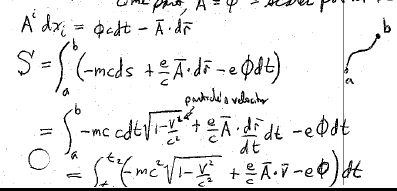 one part, A⁰ = φ = scalar pot
Aⁱ dxᵢ = φcdt - A̅·dr̅
S = ∫ₐᵇ (-mcds + e/c A̅·dr̅ - eΦdt)
b
a
particle's velocity
= ∫ₐᵇ -mc cdt √(1-v²/c²) + e/c A̅·dr̅/dt dt - eΦdt
= ∫ᵗ² (-mc² √(1-v²/c²) + e/c A̅·v̅ - eΦ) dt